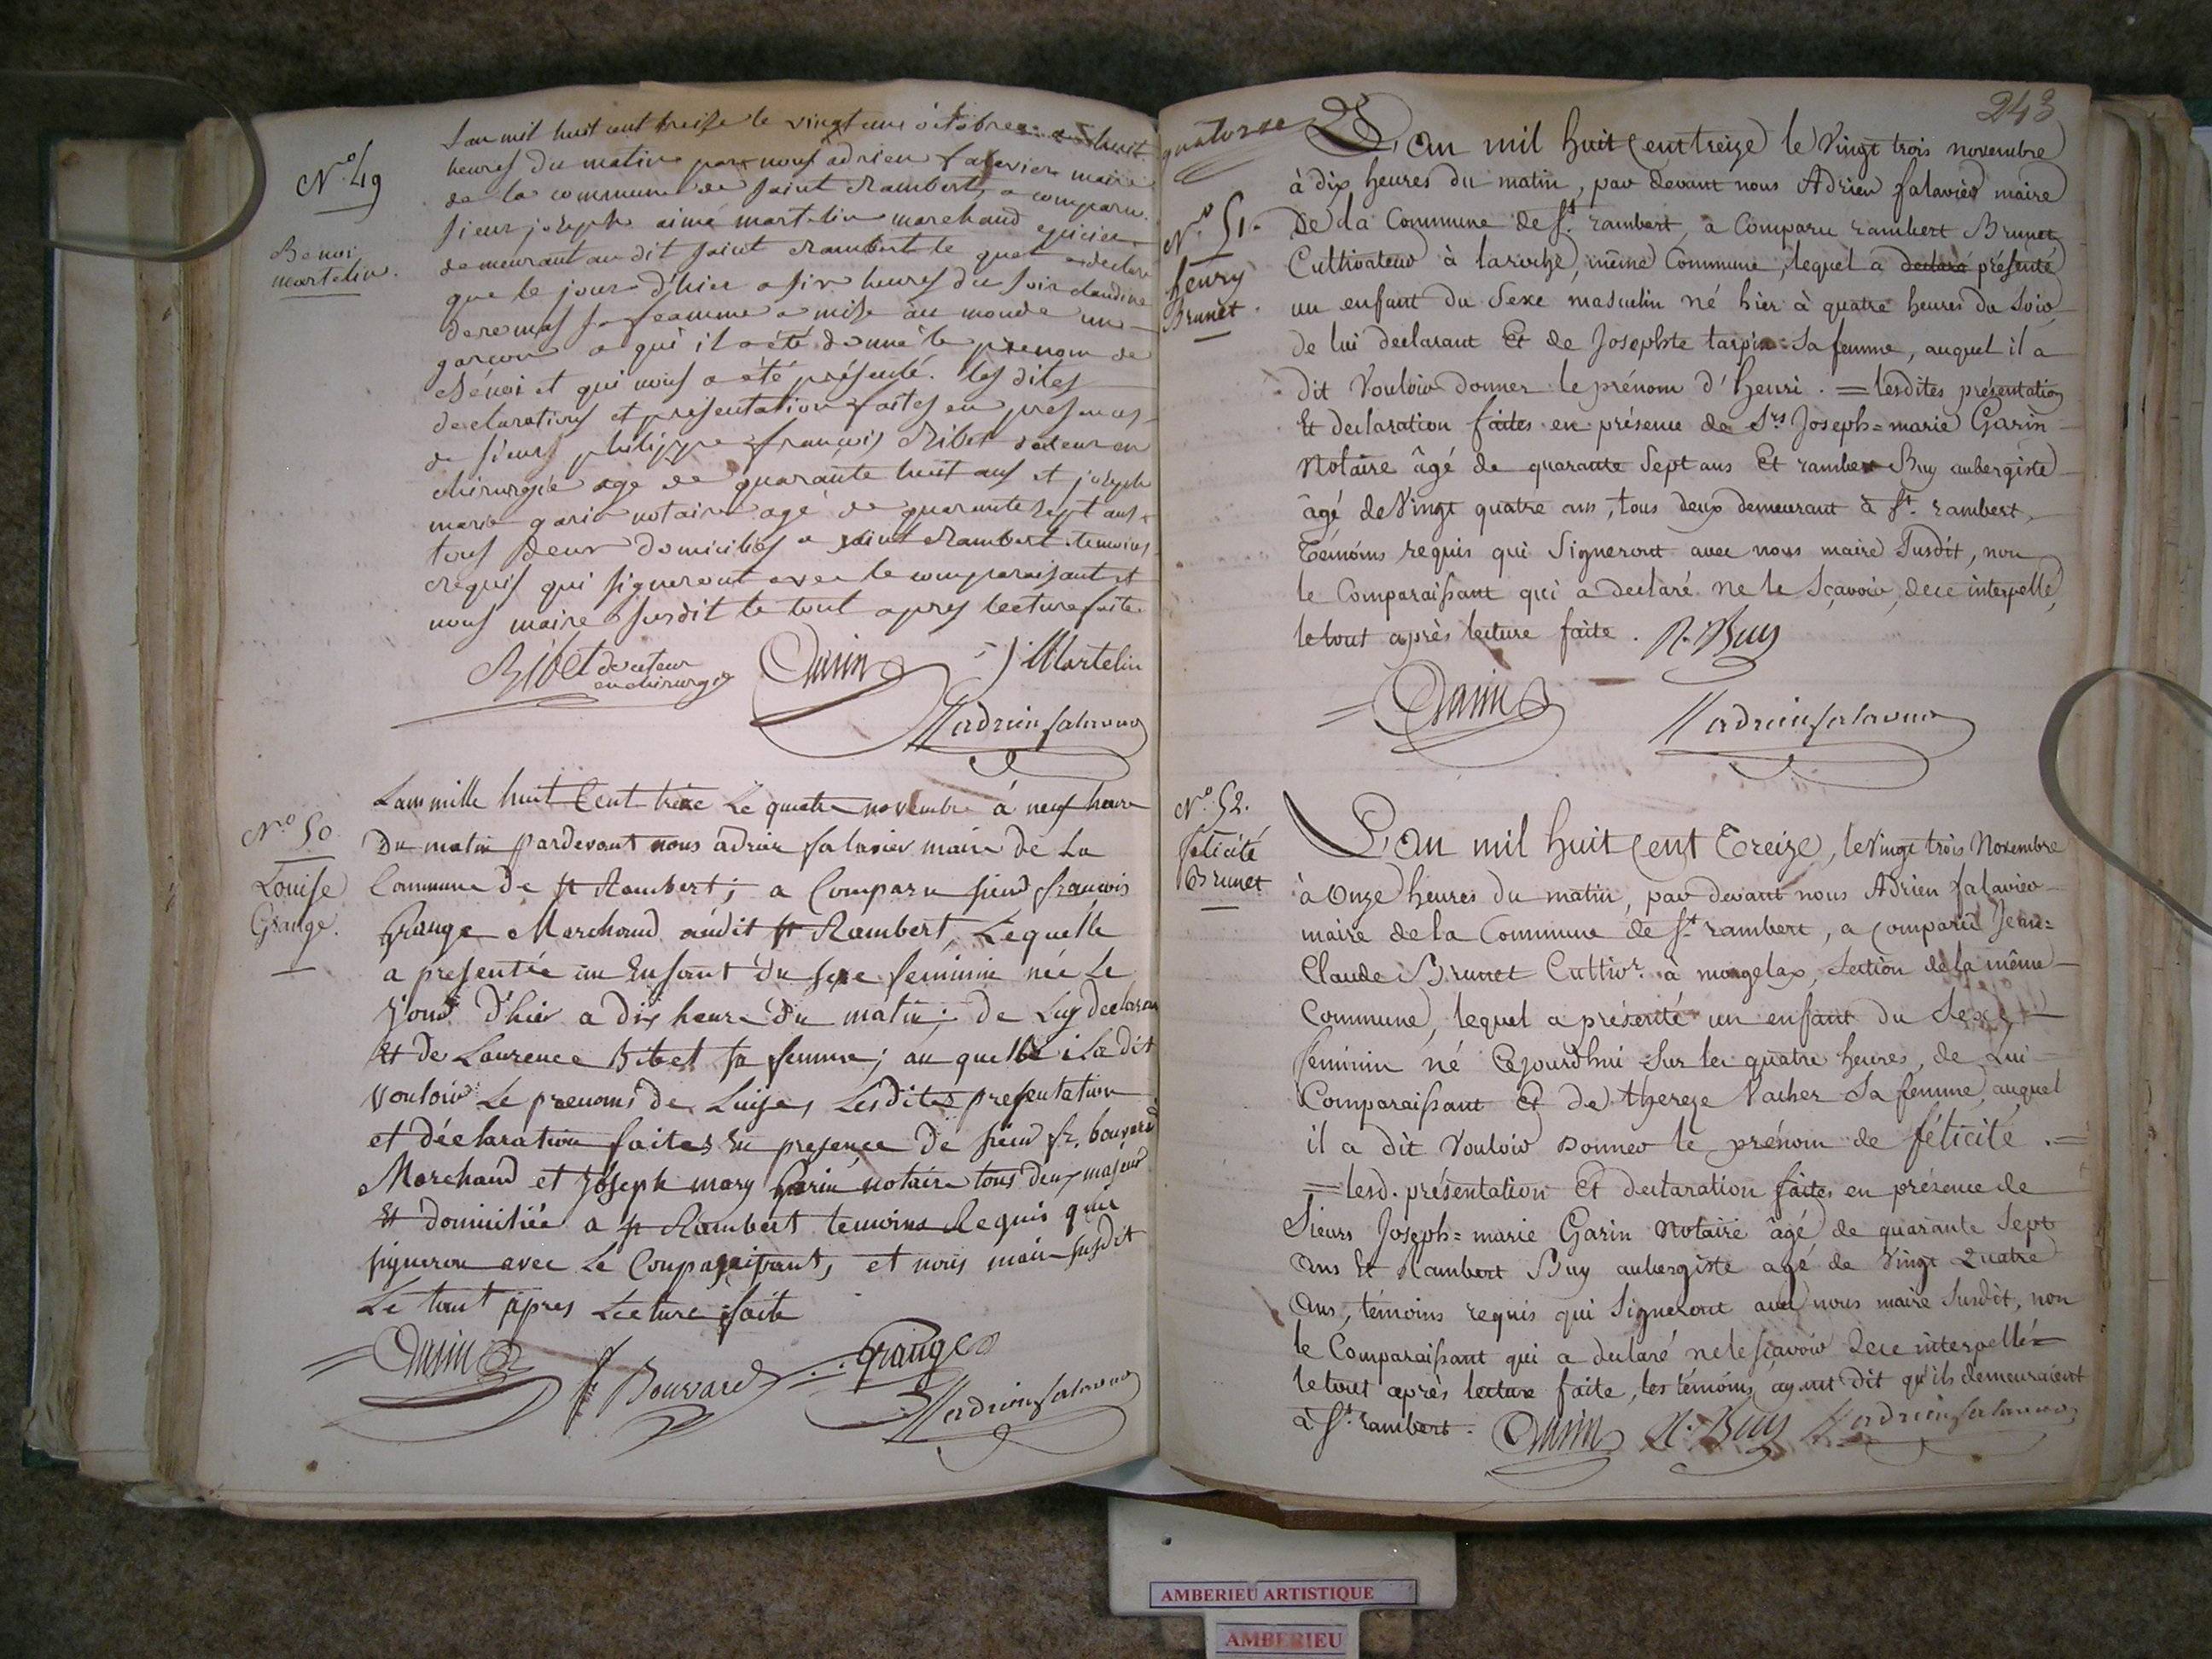 L'an mil huit cent treise le vingt une octobre a huit
heures du matin par nous adrien falavier maire
de la commune de saint Rambert, a comparu
sieur joseph aimé martelin marchand epicier
demeurant au dit saint Rambert le quel a declaré
que le jour d'hier a six heures du soir claudine
sa femme a mise au monde un
garçon a qui il a été donné le prenom de
Bénoi et qui nous a été présenté. les dites
declarations et présentation faites en presences
de sieurs philippe françois Ribet docteur en
chirurgie agé de quarante huit ans et joseph
marie garin notaire agé de quarante sept ans
tous deux domiciliés a saint Rambert temoins
requis qui signeront avec le comparaisant et
nous maire susdit le tout apres lecture faite
Ribet docteur en chirurgie Garin J Martelin
adrien falavier
N.o 49
Benoi
martelin.
Lan mille huit Cent treze Le quatre novembre à neuf heure
Du matin pardevant nous adrien falavier maire de La
Commune de st Rambert; a Comparu sieur francois
Grange Marchand audit st Rambert, Lequelle
a presentée un Enfant du sexe feminin née Le
Jour d'hier a dix heure du matin; de Luy declaran
Et de Laurence Ribet sa femme; au quelle il a dit
vouloir Le prenoms de Luise, Lesdites presentation
et déclaration faites En presence de sieur fr. bouvard
Marchand et Joseph mary Garin notaire tous deux majeur
Et domiciliée a st Rambert temoins Requis qui
signeron avec Le Comparaissant, et nous maire susdit
Le tout apres Lecture faite
Garin f Bouvard Grange
adrien falavier
N.o 50
Louise
Grange.
243
quatorze
L'an mil huit cent treize le vingt trois novembre
à dix heures du matin, par devant nous Adrien falavier maire
de la Commune de St. rambert, a Comparu rambert Brunet
Cultivateur à laroche, même Commune, lequel a declaré présenté
un enfant du Sexe masculin né hier à quatre heures du Soir
de lui declarant Et de Josephte tarpin Sa femme, auquel il a
dit Vouloir donner le prénom d'henri. = lesdites présentation
Et declaration faites en présence de Srs Joseph=marie Garin
Notaire âgé de quarante Sept ans Et rambert Buy aubergiste
âgé de Vingt quatre ans, tous deux demeurant à St. rambert,
Témoins requis qui Signeront avec nous maire Susdit, non
le Comparaissant qui a declaré ne le Sçavoir, de ce interpellé,
le tout après lecture faite. R. Buy
Garin adrien falavier
N.o 51.
henry
Brunet.
L'an mil huit cent Treize, le vingt trois Novembre
à Onze heures du matin, par devant nous Adrien falavier
maire de la Commune de St. rambert, a comparu Jean=
Claude Brunet Cultivr. à mongelax, Section de la même
Commune, lequel a présenté un enfant du Sexe
feminin né Cejourdhui Sur les quatre heures, de Lui
Comparaissant Et de thereze Vacher Sa femme, auquel
il a dit Vouloir Donner le prénom de félicité. =
= lesd. présentation Et declaration faites en présence de
Sieurs Joseph=marie Garin Notaire âgé de quarante Sept
Ans Et Rambert Buy aubergiste agé de Vingt Quatre
Ans, témoins requis qui Signeront avec nous maire Susdit, non
le Comparaissant qui a declaré ne le sçavoir de ce interpellé
le tout après lecture faite, les témoins ayant dit qu'ils demeuraient
à St. rambert. Garin R. Buy adrien falavier
N.o 52.
félicité
Brunet
AMBERIEU ARTISTIQUE
AMBERIEU